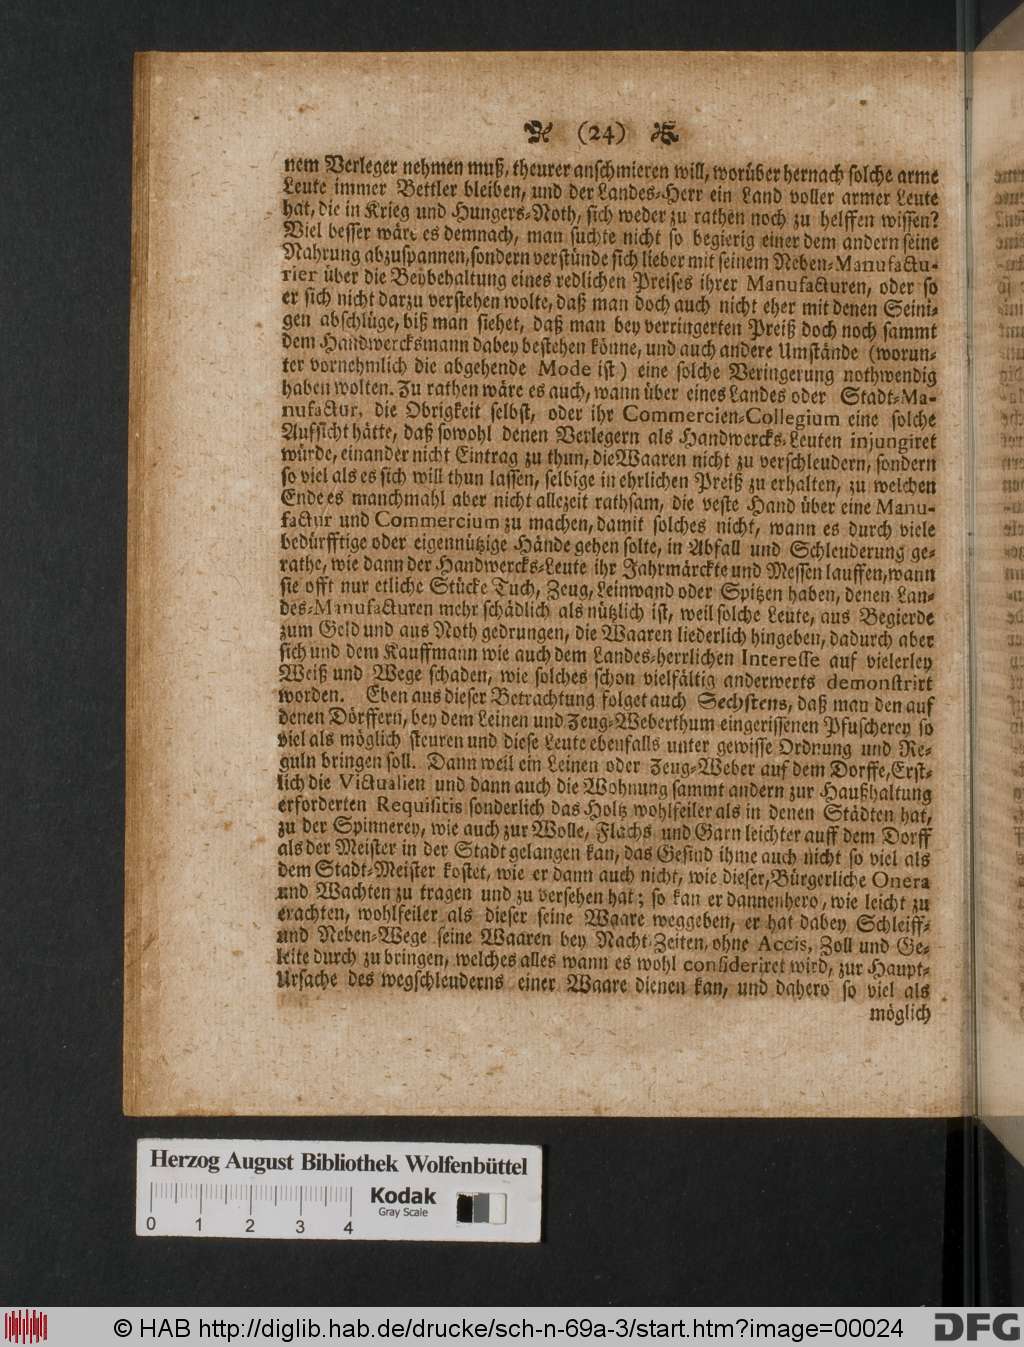 (24)
nem Verleger nehmen muß, theurer anschmieren will, worüber hernach solche arme
Leute immer Bettler bleiben, und der Landes-Herr ein Land voller armer Leute
hat, die in Krieg und Hungers-Noth, sich weder zu rathen noch zu helffen wissen?
Viel besser wäre es demnach, man suchte nicht so begierig einer dem andern seine
Nahrung abzuspannen, sondern verstünde sich lieber mit seinem Neben-Manufactu-
rier über die Beybehaltung eines redlichen Preises ihrer Manufacturen, oder so
er sich nicht darzu verstehen wolte, daß man doch auch nicht eher mit denen Seini-
gen abschlüge, biß man siehet, daß man bey verringerten Preiß doch noch sammt
dem Handwercksmann dabey bestehen könne, und auch andere Umstände (worun-
ter vornehmlich die abgehende Mode ist) eine solche Veringerung nothwendig
haben wolten. Zu rathen wäre es auch, wann über eines Landes oder Stadt-Ma-
nufactur, die Obrigkeit selbst, oder ihr Commercien-Collegium eine solche
Aufsicht hätte, daß sowohl denen Verlegern als Handwercks-Leuten injungiret
würde, einander nicht Eintrag zu thun, die Waaren nicht zu verschleudern, sondern
so viel als es sich will thun lassen, selbige in ehrlichen Preiß zu erhalten, zu welchen
Ende es manchmahl aber nicht allezeit rathsam, die veste Hand über eine Manu-
factur und Commercium zu machen, damit solches nicht, wann es durch viele
bedürfftige oder eigennützige Hände gehen solte, in Abfall und Schleuderung ge-
rathe, wie dann der Handwercks-Leute ihr Jahrmärckte und Messen lauffen, wann
sie offt nur etliche Stücke Tuch, Zeug, Leinwand oder Spitzen haben, denen Lan-
des-Manufacturen mehr schädlich als nützlich ist, weil solche Leute, aus Begierde
zum Geld und aus Noth gedrungen, die Waaren liederlich hingeben, dadurch aber
sich und dem Kauffmann wie auch dem Landes-herrlichen Interesse auf vielerley
Weiß und Wege schaden, wie solches schon vielfältig anderwerts demonstrirt
worden. Eben aus dieser Betrachtung folget auch Sechstens, daß man den auf
denen Dörffern, bey dem Leinen und Zeug-Weberthum eingerissenen Pfuscherey so
viel als möglich steuren und diese Leute ebenfalls unter gewisse Ordnung und Re-
guln bringen soll. Dann weil ein Leinen oder Zeug-Weber auf dem Dorffe, Erst-
lich die Victualien und dann auch die Wohnung sammt andern zur Haußhaltung
erforderten Requisitis sonderlich das Holtz wohlfeiler als in denen Städten hat,
zu der Spinnerey, wie auch zur Wolle, Flachs und Garn leichter auff dem Dorff
als der Meister in der Stadt gelangen kan, das Gesind ihme auch nicht so viel als
dem Stadt-Meister kostet, wie er dann auch nicht, wie dieser, Bürgerliche Onera
und Wachten zu tragen und zu versehen hat; so kan er dannenhero, wie leicht zu
erachten, wohlfeiler als dieser seine Waare weggeben, er hat dabey Schleiff-
und Neben-Wege seine Waaren bey Nacht-Zeiten, ohne Accis, Zoll und Ge-
leite durch zu bringen, welches alles wann es wohl consideriret wird, zur Haupt-
Ursache des wegschleuderns einer Waare dienen kan, und dahero so viel als
möglich
Herzog August Bibliothek Wolfenbüttel
Kodak
Gray Scale
0 1 2 3 4
© HAB http://diglib.hab.de/drucke/sch-n-69a-3/start.htm?image=00024
DFG